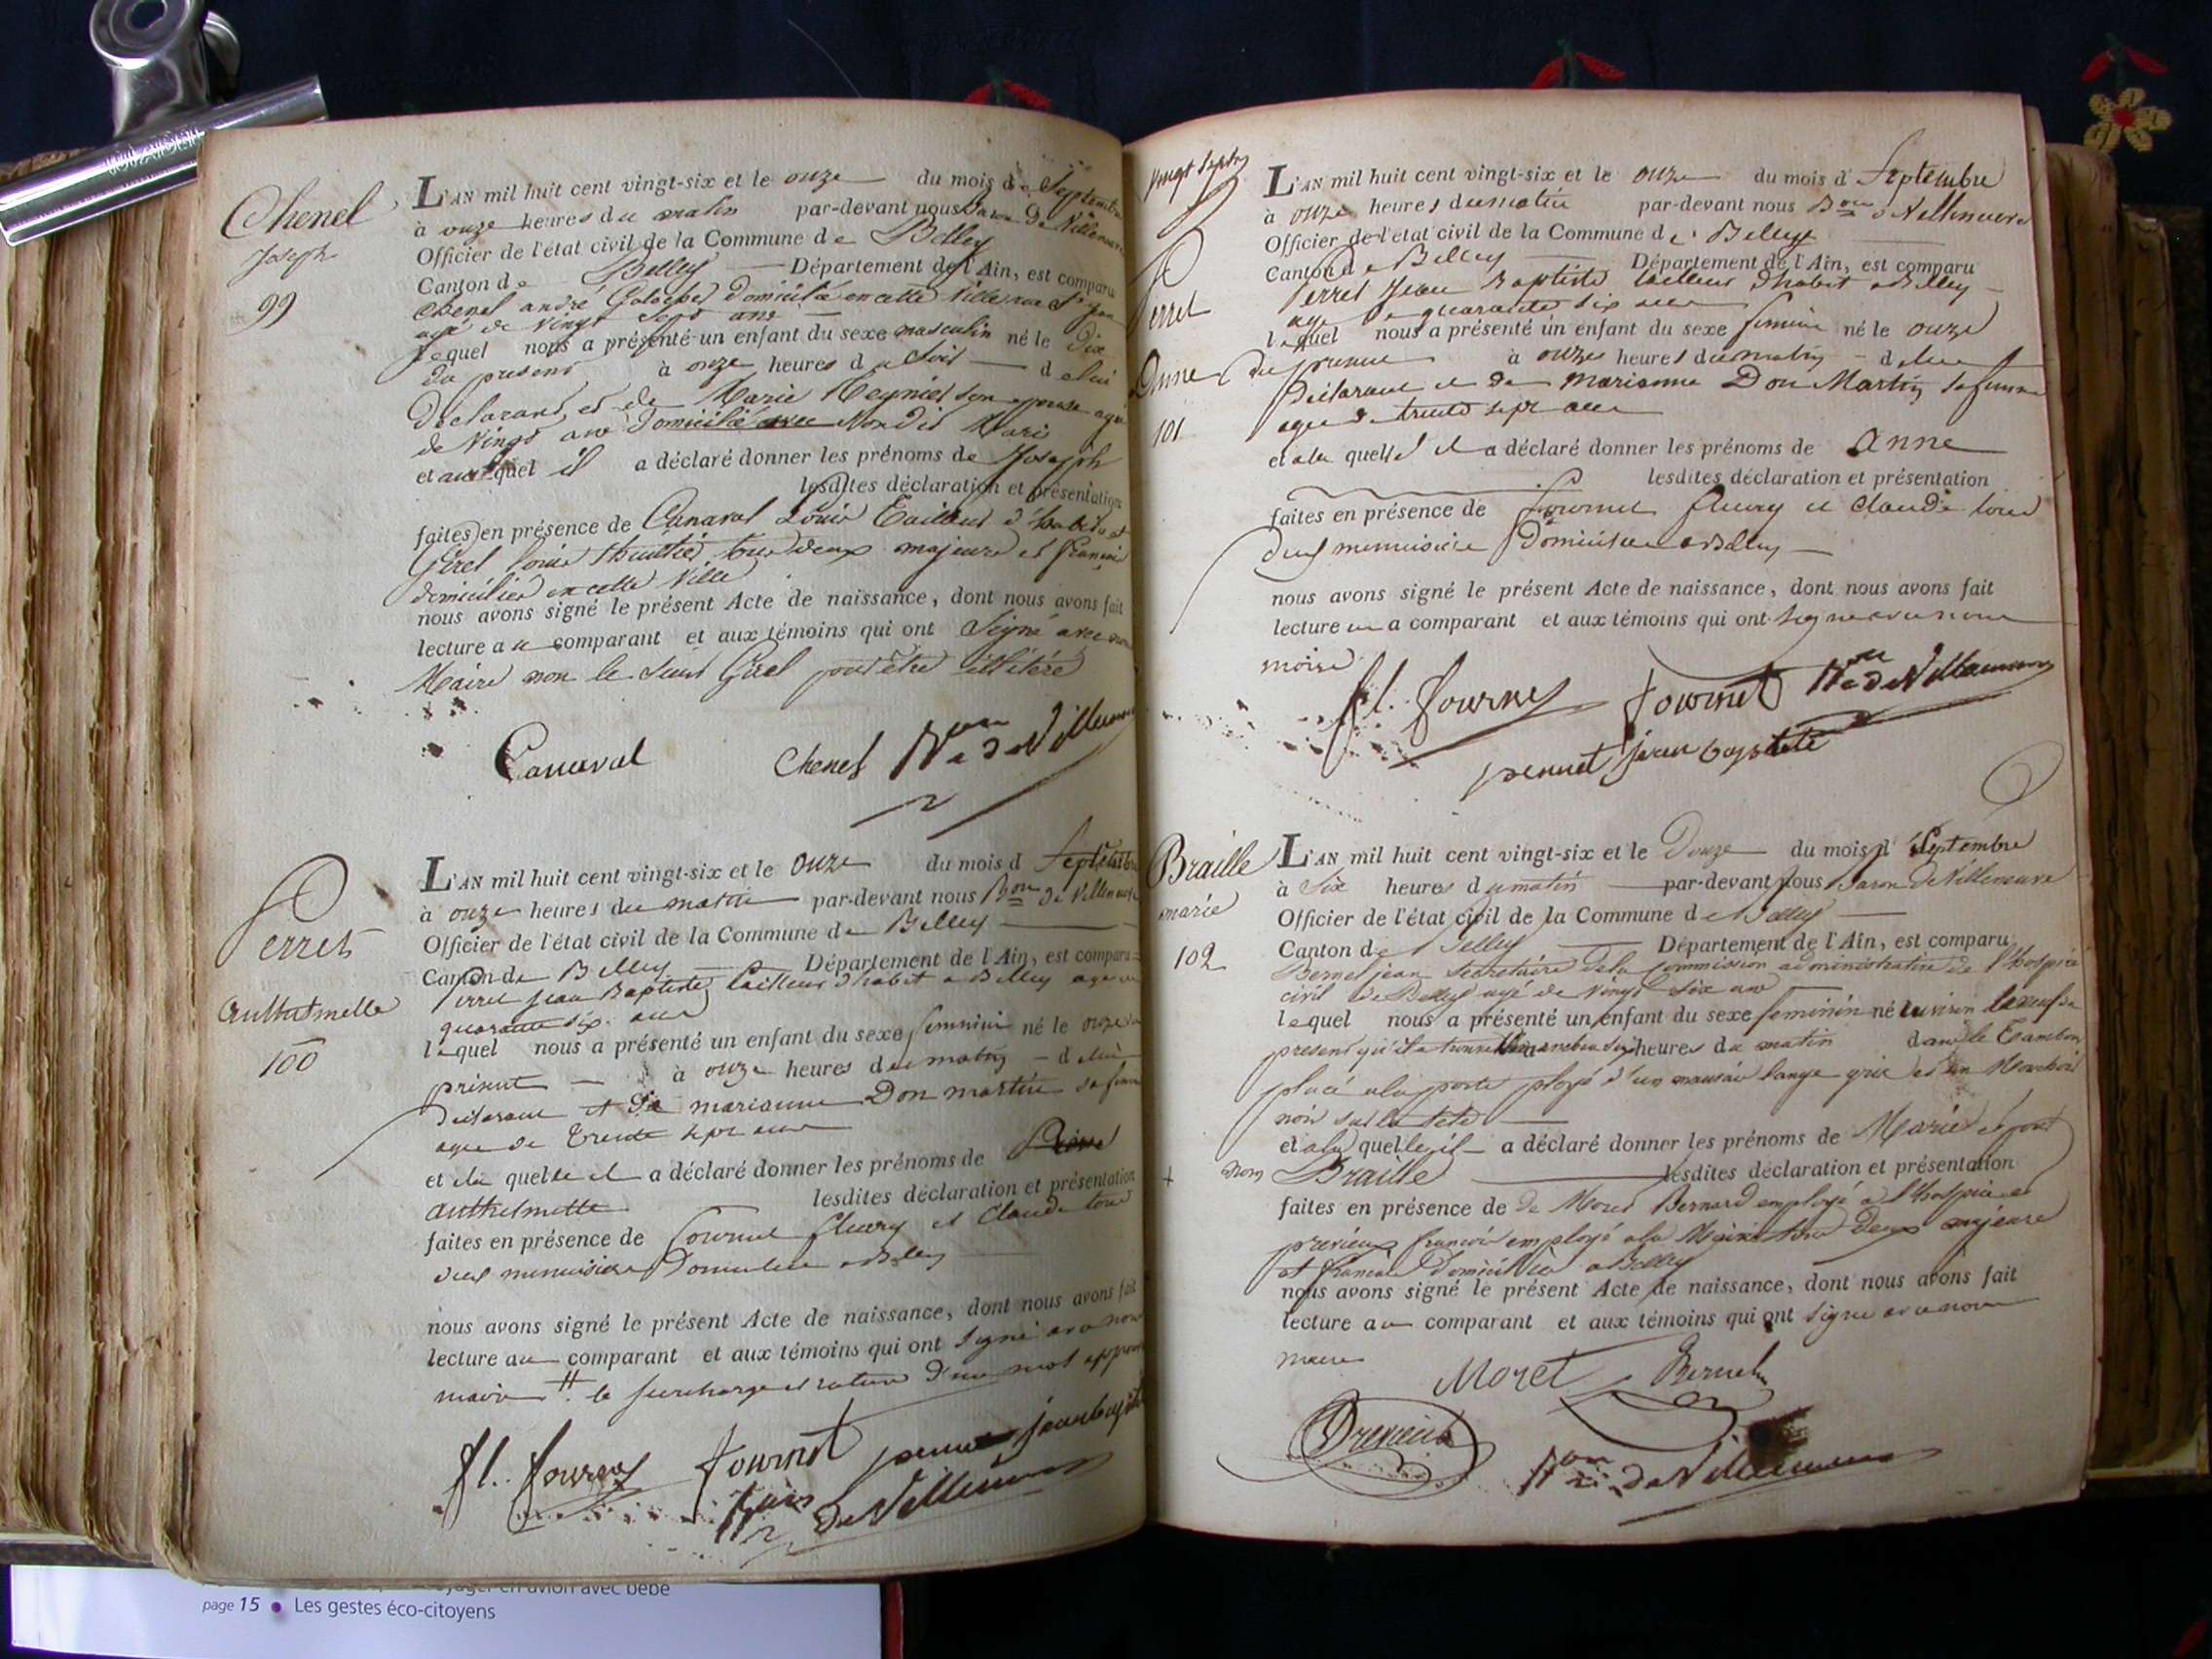 Chenel
Joseph
99
L'AN mil huit cent vingt-six et le onze du mois de Septembre
à onze heures du matin par-devant nous Baron De Villeneuve
Officier de l'état civil de la Commune de Belley
Canton de Belley Département de l'Ain, est comparu
Chenel andré domicilié en cette Ville rue St jean
agé de Vingt Sept ans
lequel nous a présenté un enfant du sexe masculin né le Dix
du present à onze heures du Soir de lui
Déclarant, et de Marie Meyniel son epouse agée
de Vingt ans Domicilié avec Son Dit Mari
et auquel il a déclaré donner les prénoms de Joseph
lesdites déclaration et présentation
faites en présence de Canaval Louis Tailleur d'habits et
Girel louis tous deux majeurs et français
domiciliés en cette Ville
nous avons signé le présent Acte de naissance, dont nous avons fait
lecture au comparant et aux témoins qui ont Signé avec nous
Maire non le Sieur Girel pour être illitéré
Canaval Chenel Bon De Villeneuve
Perret
Anthelmette
100
L'AN mil huit cent vingt-six et le onze du mois d Septembre
à onze heures du matin par-devant nous Bon De Villeneuve
Officier de l'état civil de la Commune de Belley
Canton de Belley Département de l'Ain, est comparu
Perret Jean Baptiste tailleur d'habit a Belley age de
quarante six ans
lequel nous a présenté un enfant du sexe feminin né le onze du
présent à onze heures du matin de lui
Déclarant et de marianne Don martin sa femme
agee de trente sept ans
et a la quelle il a déclaré donner les prénoms de
anthelmette lesdites déclaration et présentation
faites en présence de fournet fleury et Claude tous
deux menuisiers Domiciliés a Belley
nous avons signé le présent Acte de naissance, dont nous avons fait
lecture au comparant et aux témoins qui ont signé avec nous
maire # la surcharge et rature d'un mot approuvé
fl. fournet fournet perret jean baptiste
Bon de Villeneuve
vingt septbre
Perret
Anne
101
L'AN mil huit cent vingt-six et le onze du mois d Septembre
à onze heures du matin par-devant nous Bon de Villeneuve
Officier de l'état civil de la Commune de Belley
Canton de Belley Département de l'Ain, est comparu
Perret Jean Baptiste tailleur d'habit a Belley
age de quarante six ans
lequel nous a présenté un enfant du sexe feminin né le onze
du présent à onze heures du matin de lui
Déclarant et de marianne Don Martin sa femme
agee de trente sept ans
et a la quelle il a déclaré donner les prénoms de Anne
lesdites déclaration et présentation
faites en présence de fournet fleury et Claude tous
deux menuisiers Domiciliés a Belley
nous avons signé le présent Acte de naissance, dont nous avons fait
lecture au comparant et aux témoins qui ont signé avec nous
maire
fl. fournet fournet Bon de Villeneuve
perret jean baptiste
Braille
marie
102
L'AN mil huit cent vingt-six et le Douze du mois d Septembre
à Six heures du matin par-devant nous Baron De Villeneuve
Officier de l'état civil de la Commune de Belley
Canton de Belley Département de l'Ain, est comparu
Bernet jean Secretaire de la Commission administrative de l'hospice
civil de Belley agé de Vingt Six ans
lequel nous a présenté un enfant du sexe feminin né environ le neuf du
present qu'il a trouvé heures du matin dans le Tambour
placé a la porte ployé d'un mauvais lange gris et un Mouchoir
noir sur la tete
et a la quelle il a déclaré donner les prénoms de Marie et pour
+ nom Braille lesdites déclaration et présentation
faites en présence de De Moret Bernard employé a l'hospice et
Drevieux françois employé a la Mairie tous Deux majeurs
et français Domiciliés a Belley
nous avons signé le présent Acte de naissance, dont nous avons fait
lecture au comparant et aux témoins qui ont signé avec nous
maire
Moret Bernet
Drevieux Bon De Villeneuve
voyager en avion avec bébé
page 15 ● Les gestes éco-citoyens